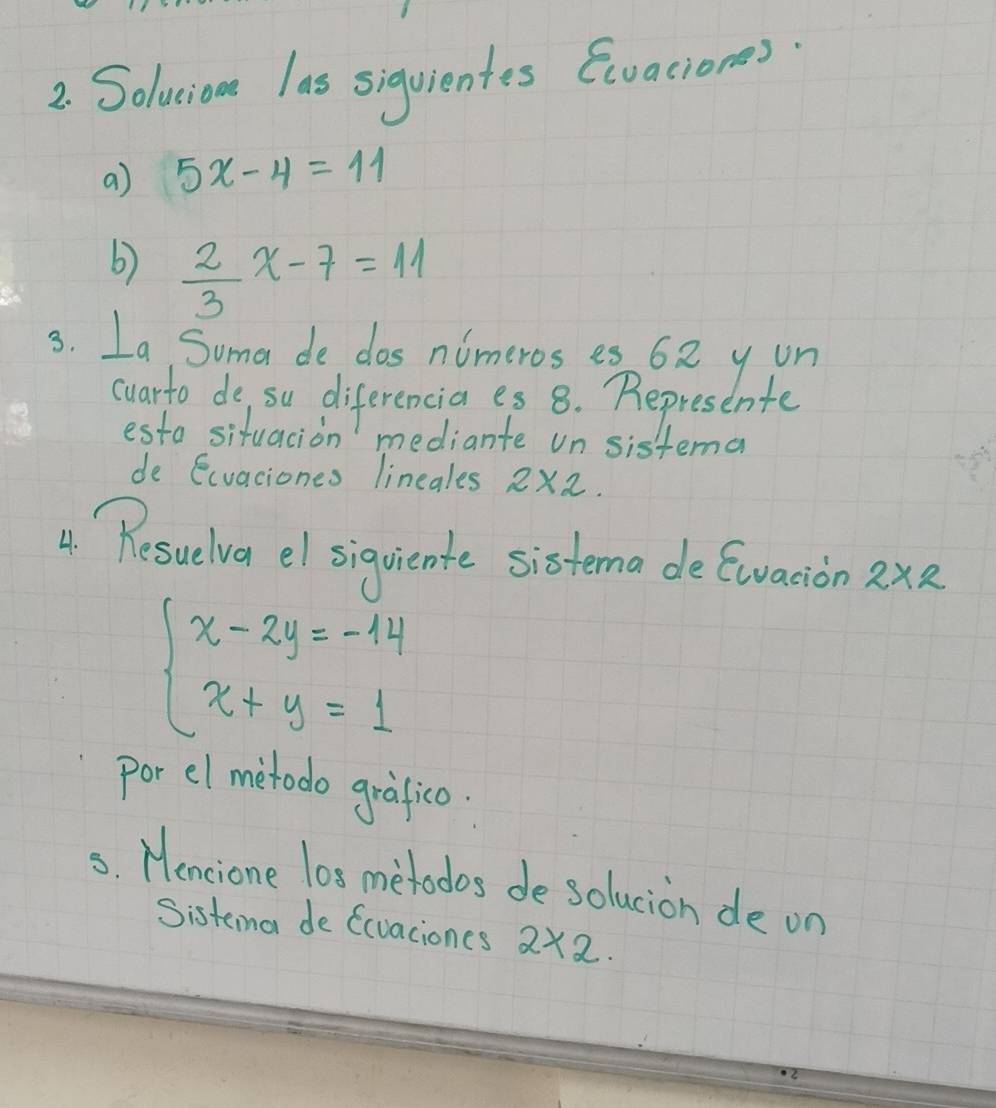 2. Solucione las siguientes Ecuaciones.
a) 5x - 4 = 11
b) 2/3 x - 7 = 11
3. La Suma de dos números es 62 y un
cuarto de su diferencia es 8. Represente
esta situación mediante un sistema
de Ecuaciones lineales 2x2.
4. Resuelva el siguiente sistema de Ecuación 2x2
{ x - 2y = -14
x + y = 1
por el mètodo gràfico.
5. Mencione los mètodos de solución de un
Sistema de Ecuaciones 2x2.